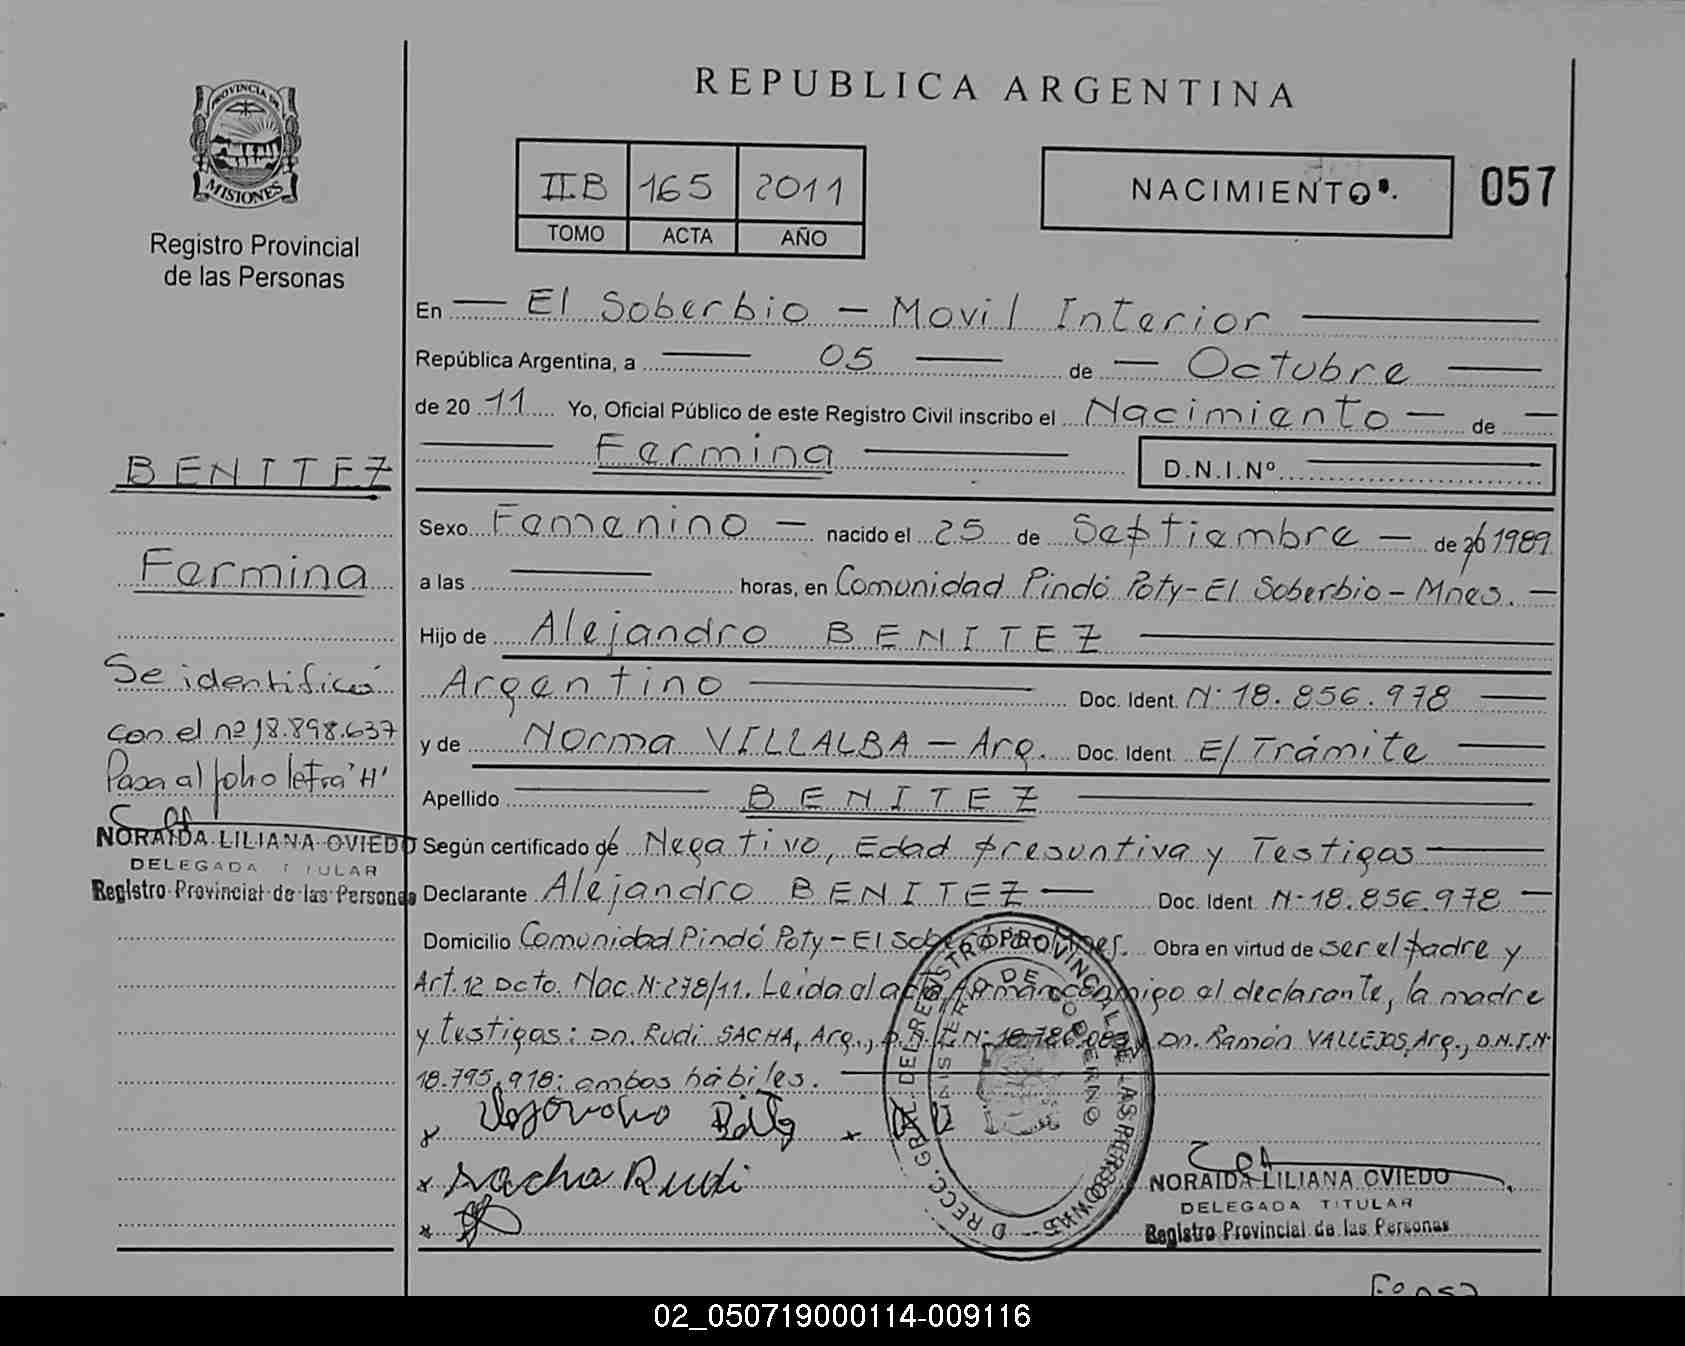 REPUBLICA ARGENTINA
PROVINCIA DE
MISIONES
Registro Provincial
de las Personas
IIB 165 2011
TOMO ACTA AÑO
NACIMIENTO
057
En El Soberbio - Movil Interior
República Argentina, a 05 de Octubre
de 20 11 Yo, Oficial Público de este Registro Civil inscribo el Nacimiento de
Fermina
D.N.I.Nº
BENITEZ
Fermina
Se identificó
con el nº 18.898.637
Pasa al folio letra "H"
NORAIDA LILIANA OVIEDO
DELEGADA TITULAR
Registro Provincial de las Personas
Sexo Femenino - nacido el 25 de Septiembre - de 20 1989
a las horas, en Comunidad Pindó Poty - El Soberbio - Mnes. -
Hijo de Alejandro BENITEZ
Argentino Doc. Ident. Nº 18.856.978
y de Norma VILLALBA - Arg. Doc. Ident. E/Trámite
Apellido BENITEZ
Según certificado de Negativo, Edad presuntiva y Testigos
Declarante Alejandro BENITEZ Doc. Ident. Nº 18.856.978
Domicilio Comunidad Pindó Poty - El Soberbio Mnes. Obra en virtud de ser el padre y
Art. 12 Dcto. Nac. Nº 278/11. Leida al acta firman conmigo el declarante, la madre
y testigos: Dn. Rudi SACHA, Arg., D.N.I. Nº Dn. Ramón VALLEJOS, Arg., D.N.I.Nº
18.795.918; ambos hábiles.
Sacha Rudi
DIRECC. GRAL. DEL REGISTRO PROVINCIAL DE LAS PERSONAS
MINISTERIO DE GOBIERNO
NORAIDA LILIANA OVIEDO
DELEGADA TITULAR
Registro Provincial de las Personas
02_050719000114-009116